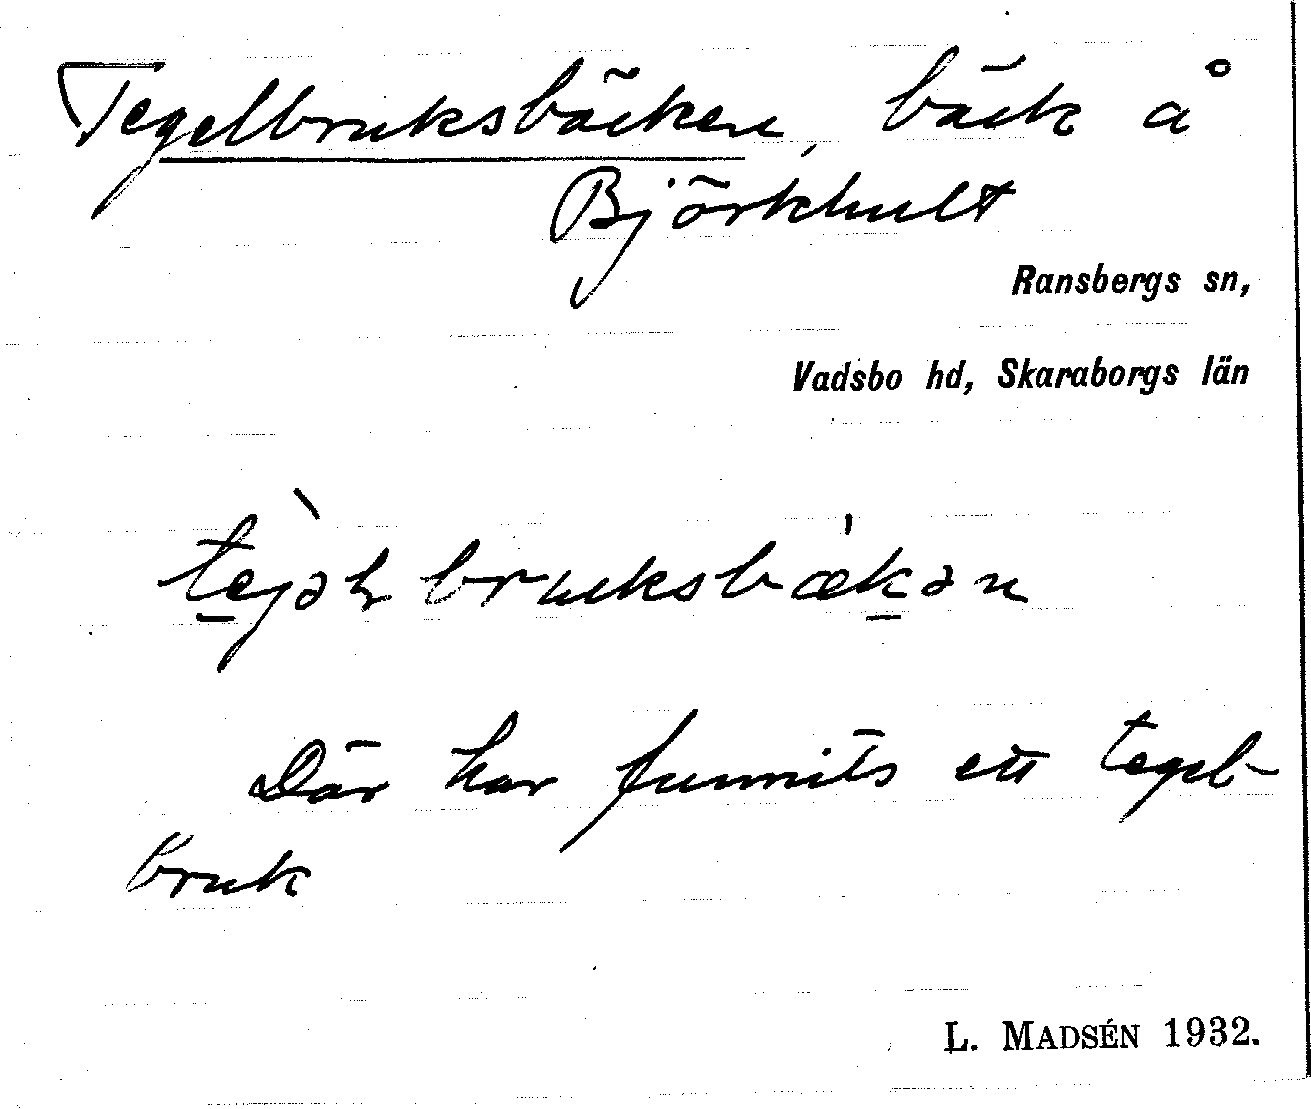 Tegelbruksbäcken, bäck å
Björkhult
Ransbergs sn,
Vadsbo hd, Skaraborgs län
Där har funnits ett tegel-
bruk
L. MADSÉN 1932.